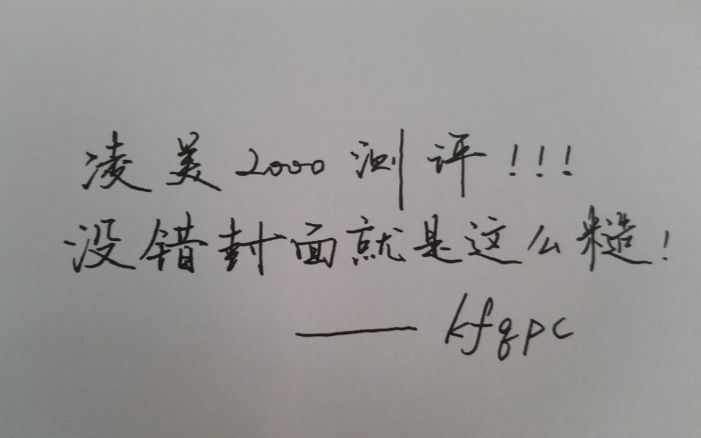 凌美2000测评!!!
没错封面就是这么糙!
——kfqpc